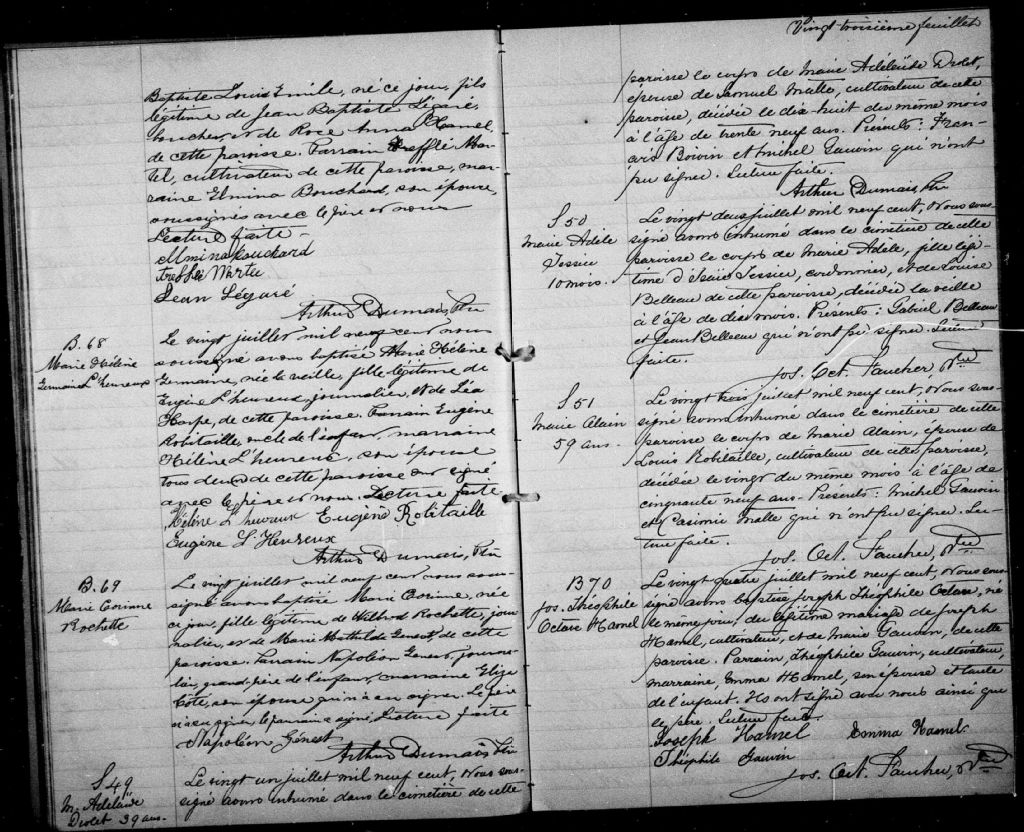 Baptiste Louis Emile, né ce jour, fils
légitime de Jean Baptiste Légaré,
boucher, et de Rose Anna Hamel,
de cette paroisse. Parrain Trefflé Mar-
tel, cultivateur de cette paroisse, mar-
raine Elmina Bouchard, son épouse,
soussignés avec le père et nous
Lecture faite -
Elmina Bouchard
Jean Légaré
Arthur Dumais, Ptre
B. 68
Marie Hélène
Germaine L'heureux
Le vingt juillet mil neuf cent nous
soussigné avons baptisé Marie Hélène
Germaine, née la veille, fille légitime de
Eugène L'heureux, journalier, et de Léa
Harpe, de cette paroisse. Parrain Eugène
Robitaille, oncle de l'enfant, marraine
Hélène L'heureux, son épouse
tous deux de cette paroisse ont signé
avec le père et nous. Lecture faite
Hélène L'heureux Eugène Robitaille
Eugène L'Heureux
Arthur Dumais, Ptre
B. 69
Marie Corinne
Rochette
Le vingt juillet mil neuf cent nous sous-
signé avons baptisé Marie Corinne, née
ce jour, fille légitime de Wilbrod Rochette, jour
nalier, et de Marie Mathilde Genest, de cette
paroisse. Parrain Napoléon Genest, journa-
lier, grand-père de l'enfant, marraine Elize
Côté, son épouse qui n'a su signer. Le père
n'a su signer, le parrain a signé, Lecture faite
Napoléon Génest
Arthur Dumais Ptre
S 49
M. Adélaïde
Drolet 39 ans.
Le vingt un juillet mil neuf cent, Nous sous-
signé avons inhumé dans le cimetière de cette
Vingt troisième feuillet
paroisse le corps de Marie Adélaïde Drolet,
épouse de Samuel Matte, cultivateur de cette
paroisse, décédée le dix-huit du même mois
à l'âge de trente neuf ans. Présents: Fran-
Boivin et Michel Gauvin qui n'ont
pu signer. Lecture faite.
Arthur Dumais, Ptre
S 50
Marie Adèle
Tessier
10 mois.
Le vingt deux juillet mil neuf cent, Nous sous-
signé avons inhumé dans le cimetière de cette
paroisse le corps de Marie Adèle, fille légi-
time d'Isaïe Tessier, cordonnier, et de Louise
Belleau de cette paroisse, décédée la veille
à l'âge de dix mois. Présents: Gabriel Belleau
et Jean Belleau qui n'ont pu signer. Lecture
faite.
Jos. Oct. Faucher, Ptre
S 51
Marie Alain
59 ans.
Le vingt trois juillet mil neuf cent, Nous sous-
signé avons inhumé dans le cimetière de cette
paroisse le corps de Marie Alain, épouse de
Louis Robitaille, cultivateur de cette paroisse,
décédée le vingt du même mois à l'âge de
cinquante neuf ans. Présents: Michel Gauvin
et Casimir Matte qui n'ont pu signer. Lec-
ture faite.
Jos. Oct. Faucher, Ptre
B 70
Jos. Théophile
Octave Hamel
Le vingt quatre juillet mil neuf cent, Nous sous-
signé avons baptisé Joseph Théophile Octave, né
le même jour, du légitime mariage de Joseph
Hamel, cultivateur, et de Marie Gauvin, de cette
paroisse. Parrain, Théophile Gauvin, cultivateur,
marraine, Emma Hamel, son épouse et tante
de l'enfant. Ils ont signé avec nous ainsi que
le père. Lecture faite.
Joseph Hamel Emma Hamel.
Théophile Gauvin
Jos. Oct. Faucher, Ptre